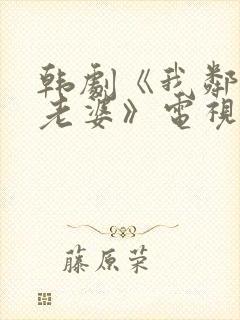 韩劇《我鄰
老婆》電視
藤原荣